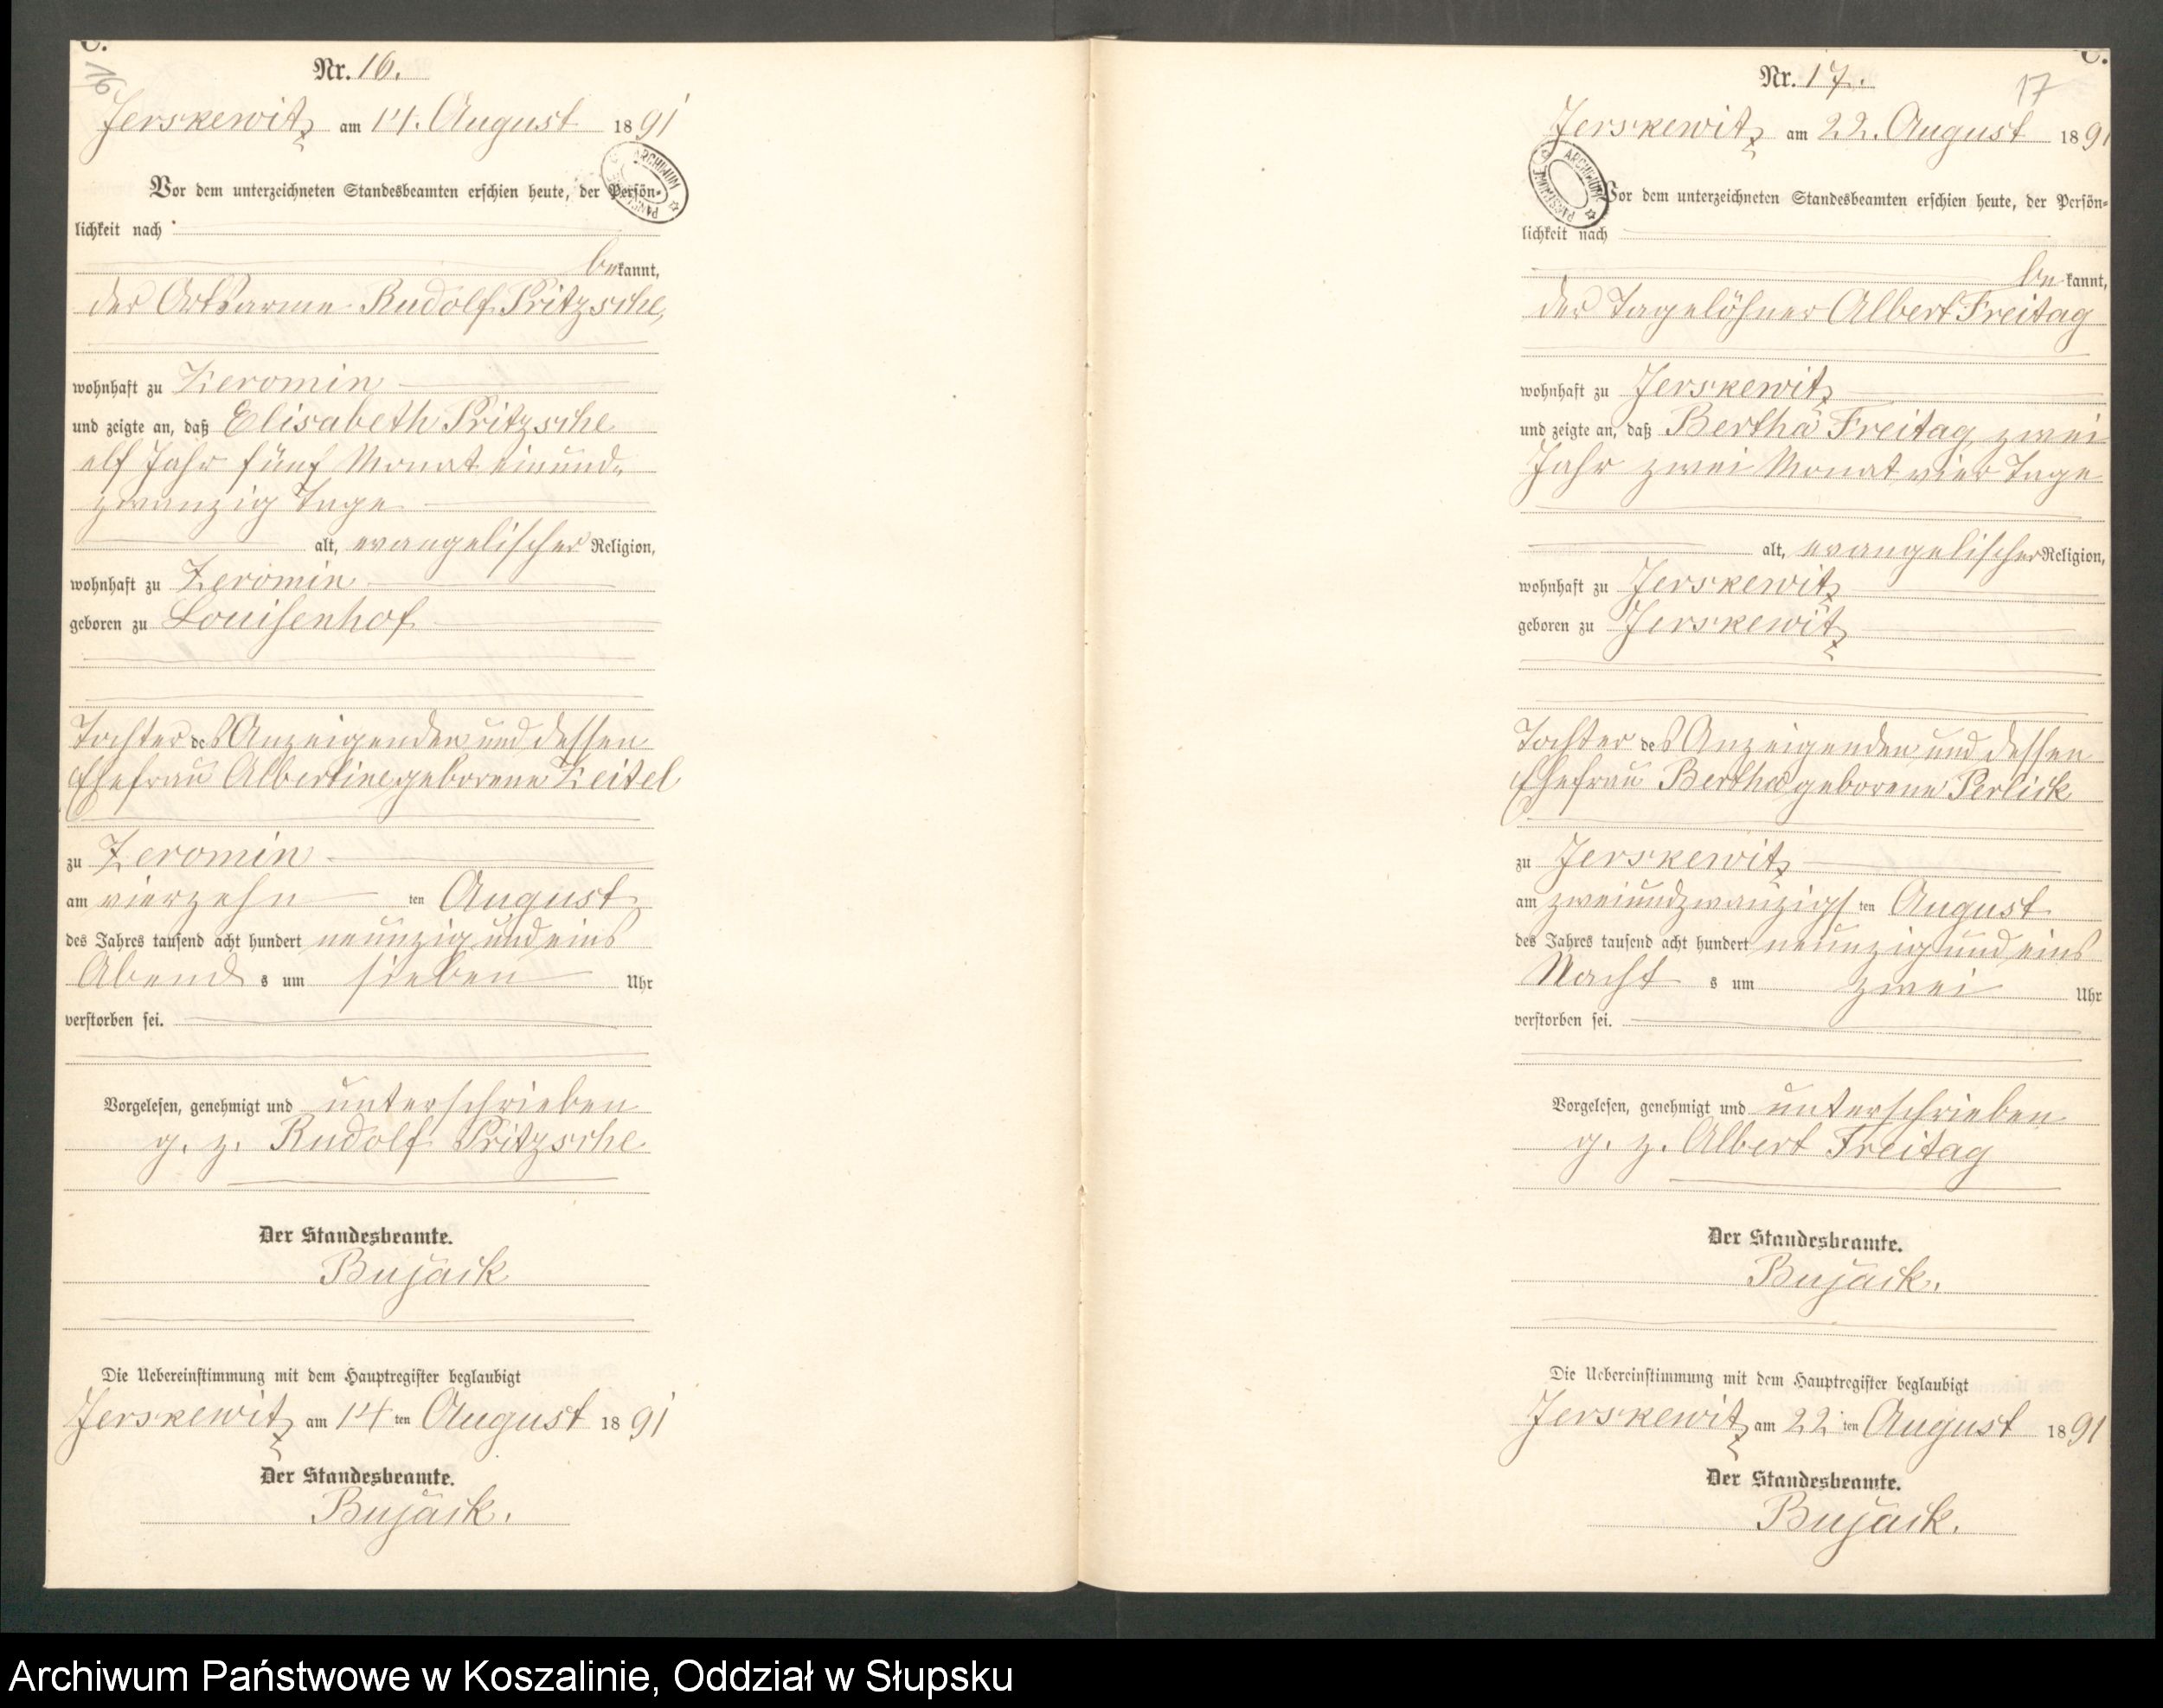 C.
16
Nr. 16.
Jerskewitz am 14. August 1891
Vor dem unterzeichneten Standesbeamten erschien heute, der Persön-
lichkeit nach
bekannt,
der Ortsarme Rudolf Pritzsche,
wohnhaft zu Zeromin
und zeigte an, daß Elisabeth Pritzsche
elf Jahr fünf Monat einund-
zwanzig Tage
alt, evangelischer Religion,
wohnhaft zu Zeromin
geboren zu Louisenhof
Tochter des Anzeigenden und dessen
Ehefrau Albertine geborene Zeitel
zu Zeromin
am vierzehn ten August
des Jahres tausend acht hundert neunzig und eins
Abend s um sieben Uhr
verstorben sei.
Vorgelesen, genehmigt und unterschrieben
g. z. Rudolf Pritzsche
Der Standesbeamte.
Bujack
Die Uebereinstimmung mit dem Hauptregister beglaubigt
Jerskewitz am 14 ten August 1891
Der Standesbeamte.
Bujack.
C.
17
Nr. 17.
Jerskewitz am 22. August 1891
Vor dem unterzeichneten Standesbeamten erschien heute, der Persön-
lichkeit nach
bekannt,
der Tagelöhner Albert Freitag
wohnhaft zu Jerskewitz
und zeigte an, daß Bertha Freitag, zwei
Jahr zwei Monat vier Tage
alt, evangelischer Religion,
wohnhaft zu Jerskewitz
geboren zu Jerskewitz
Tochter des Anzeigenden und dessen
Ehefrau Bertha geborene Perlick
zu Jerskewitz
am zweiundzwanzigs ten August
des Jahres tausend acht hundert neunzig und eins
Nacht s um zwei Uhr
verstorben sei.
Vorgelesen, genehmigt und unterschrieben
g. z. Albert Freitag
Der Standesbeamte.
Bujack.
Die Uebereinstimmung mit dem Hauptregister beglaubigt
Jerskewitz am 22 ten August 1891
Der Standesbeamte.
Bujack.
Archiwum Państwowe w Koszalinie, Oddział w Słupsku